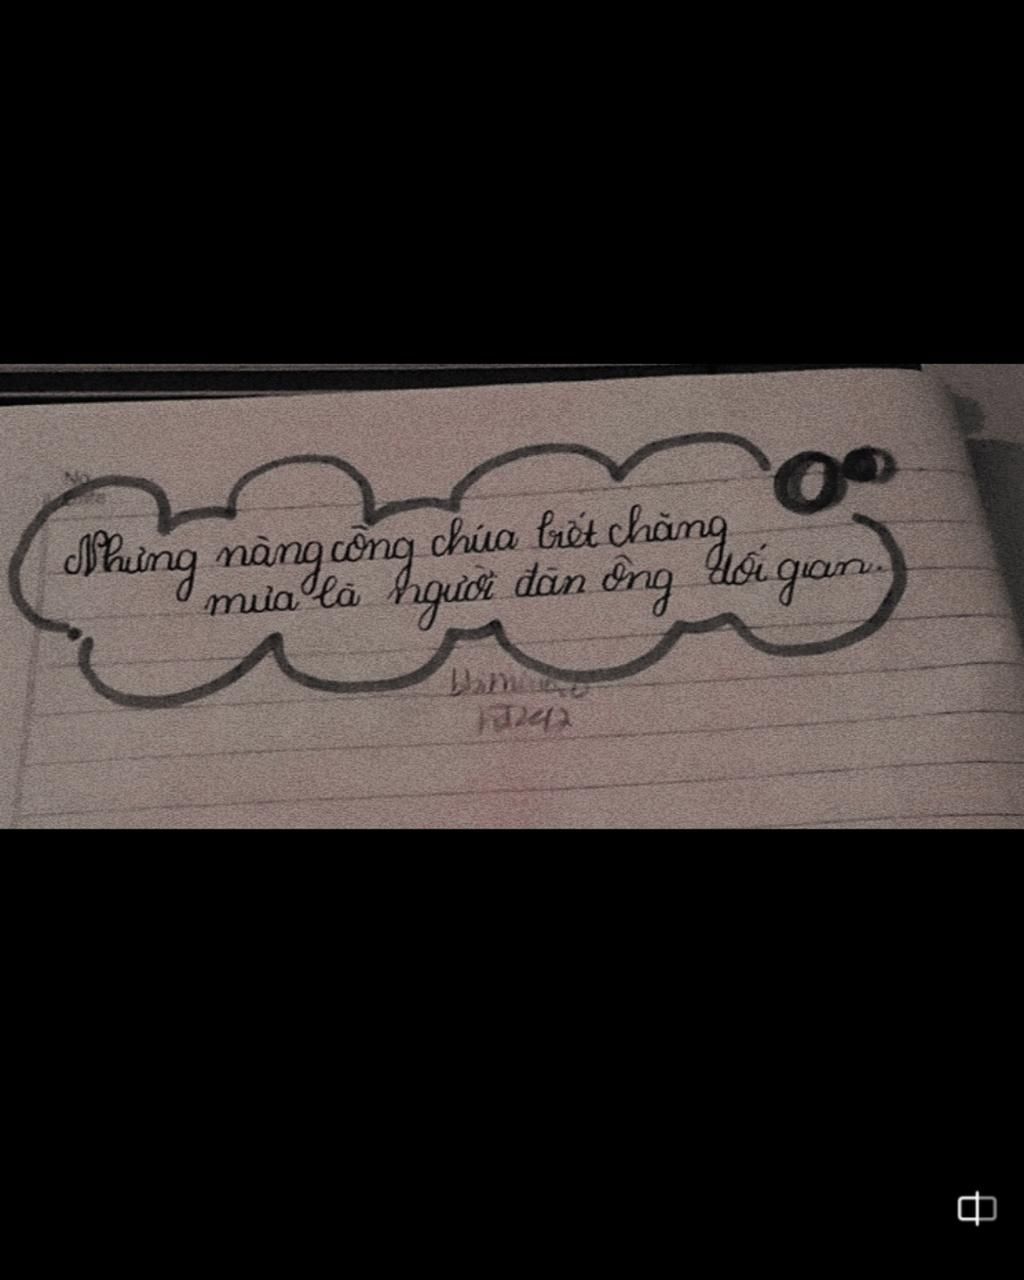 Nhưng nàng công chúa biết chăng
mưa là người đàn ông dối gian.